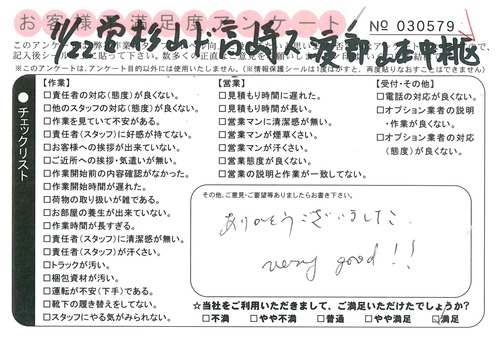 お客様満足度アンケート
№ 030579
7/28 営 杉山 ド 高崎 ス 渡部
※このアンケートは、アンケート目的以外には使用いたしません。(※情報保護シールは1度はがすと、再度貼りなおすことはできません)
チェックリスト
【作業】
□責任者の対応(態度)が良くない。
□他のスタッフの対応(態度)が良くない。
□作業を見ていて不安がある。
□責任者(スタッフ)に好感が持てない。
□お客様への挨拶が出来ていない。
□ご近所への挨拶・気遣いが無い。
□作業開始前の内容確認がなかった。
□作業開始時間が遅れた。
□荷物の取り扱いが雑である。
□お部屋の養生が出来ていない。
□作業時間が長すぎる。
□責任者(スタッフ)に清潔感が無い。
□責任者(スタッフ)が汗くさい。
□トラックが汚い。
□梱包資材が汚い。
□運転が不安(下手)である。
□靴下の履き替えをしてない。
□スタッフにやる気がみられない。
【営業】
□見積もり時間に遅れた。
□見積もり時間が長い。
□営業マンに清潔感が無い。
□営業マンが煙草くさい。
□営業マンが汗くさい。
□営業態度が良くない。
□営業の説明と作業が一致してない。
【受付・その他】
□電話の対応が良くない。
□オプション業者の説明
・作業が良くない。
□オプション業者の対応
(態度)が良くない。
その他、ご意見・ご要望等ありましたらお書き下さい。
ありがとうございました。
very good!!
☆当社をご利用いただきまして、ご満足いただけたでしょうか?
□不満 □やや不満 □普通 □やや満足 ☑満足